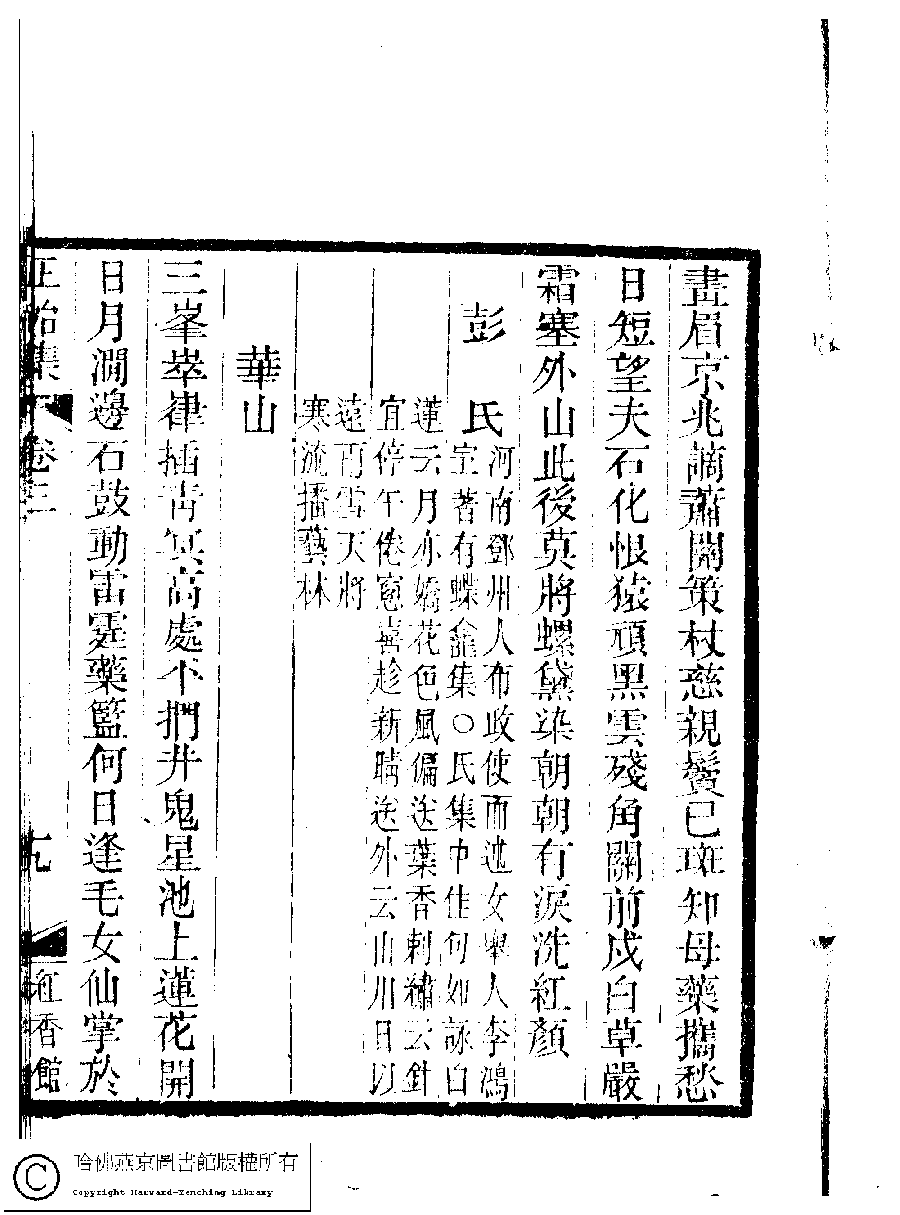 畫眉京兆謫蕭關策杖慈親鬢已斑知母藥攜愁
日短望夫石化恨猿頑黑雲殘角關前戍白草嚴
霜塞外山此後莫將螺黛染朝朝有淚洗紅顏
彭氏
河南鄧州人布政使而述女舉人李鴻
室著有蝶龕集○氏集中佳句如詠白
蓮云月亦嬌花色風偏送葉香刺繡云針
宜停午倦窻喜趁新晴送外云山川日以
遠雨雪天將
寒流播藝林
華山
三峯崒嵂插青冥高處不捫井鬼星池上蓮花開
日月澗邊石鼓動雷霆藥籃何日逢毛女仙掌於
正始集 卷三 九 紅香館
哈佛燕京圖書館版權所有
Copyright Harvard-Yenching Library